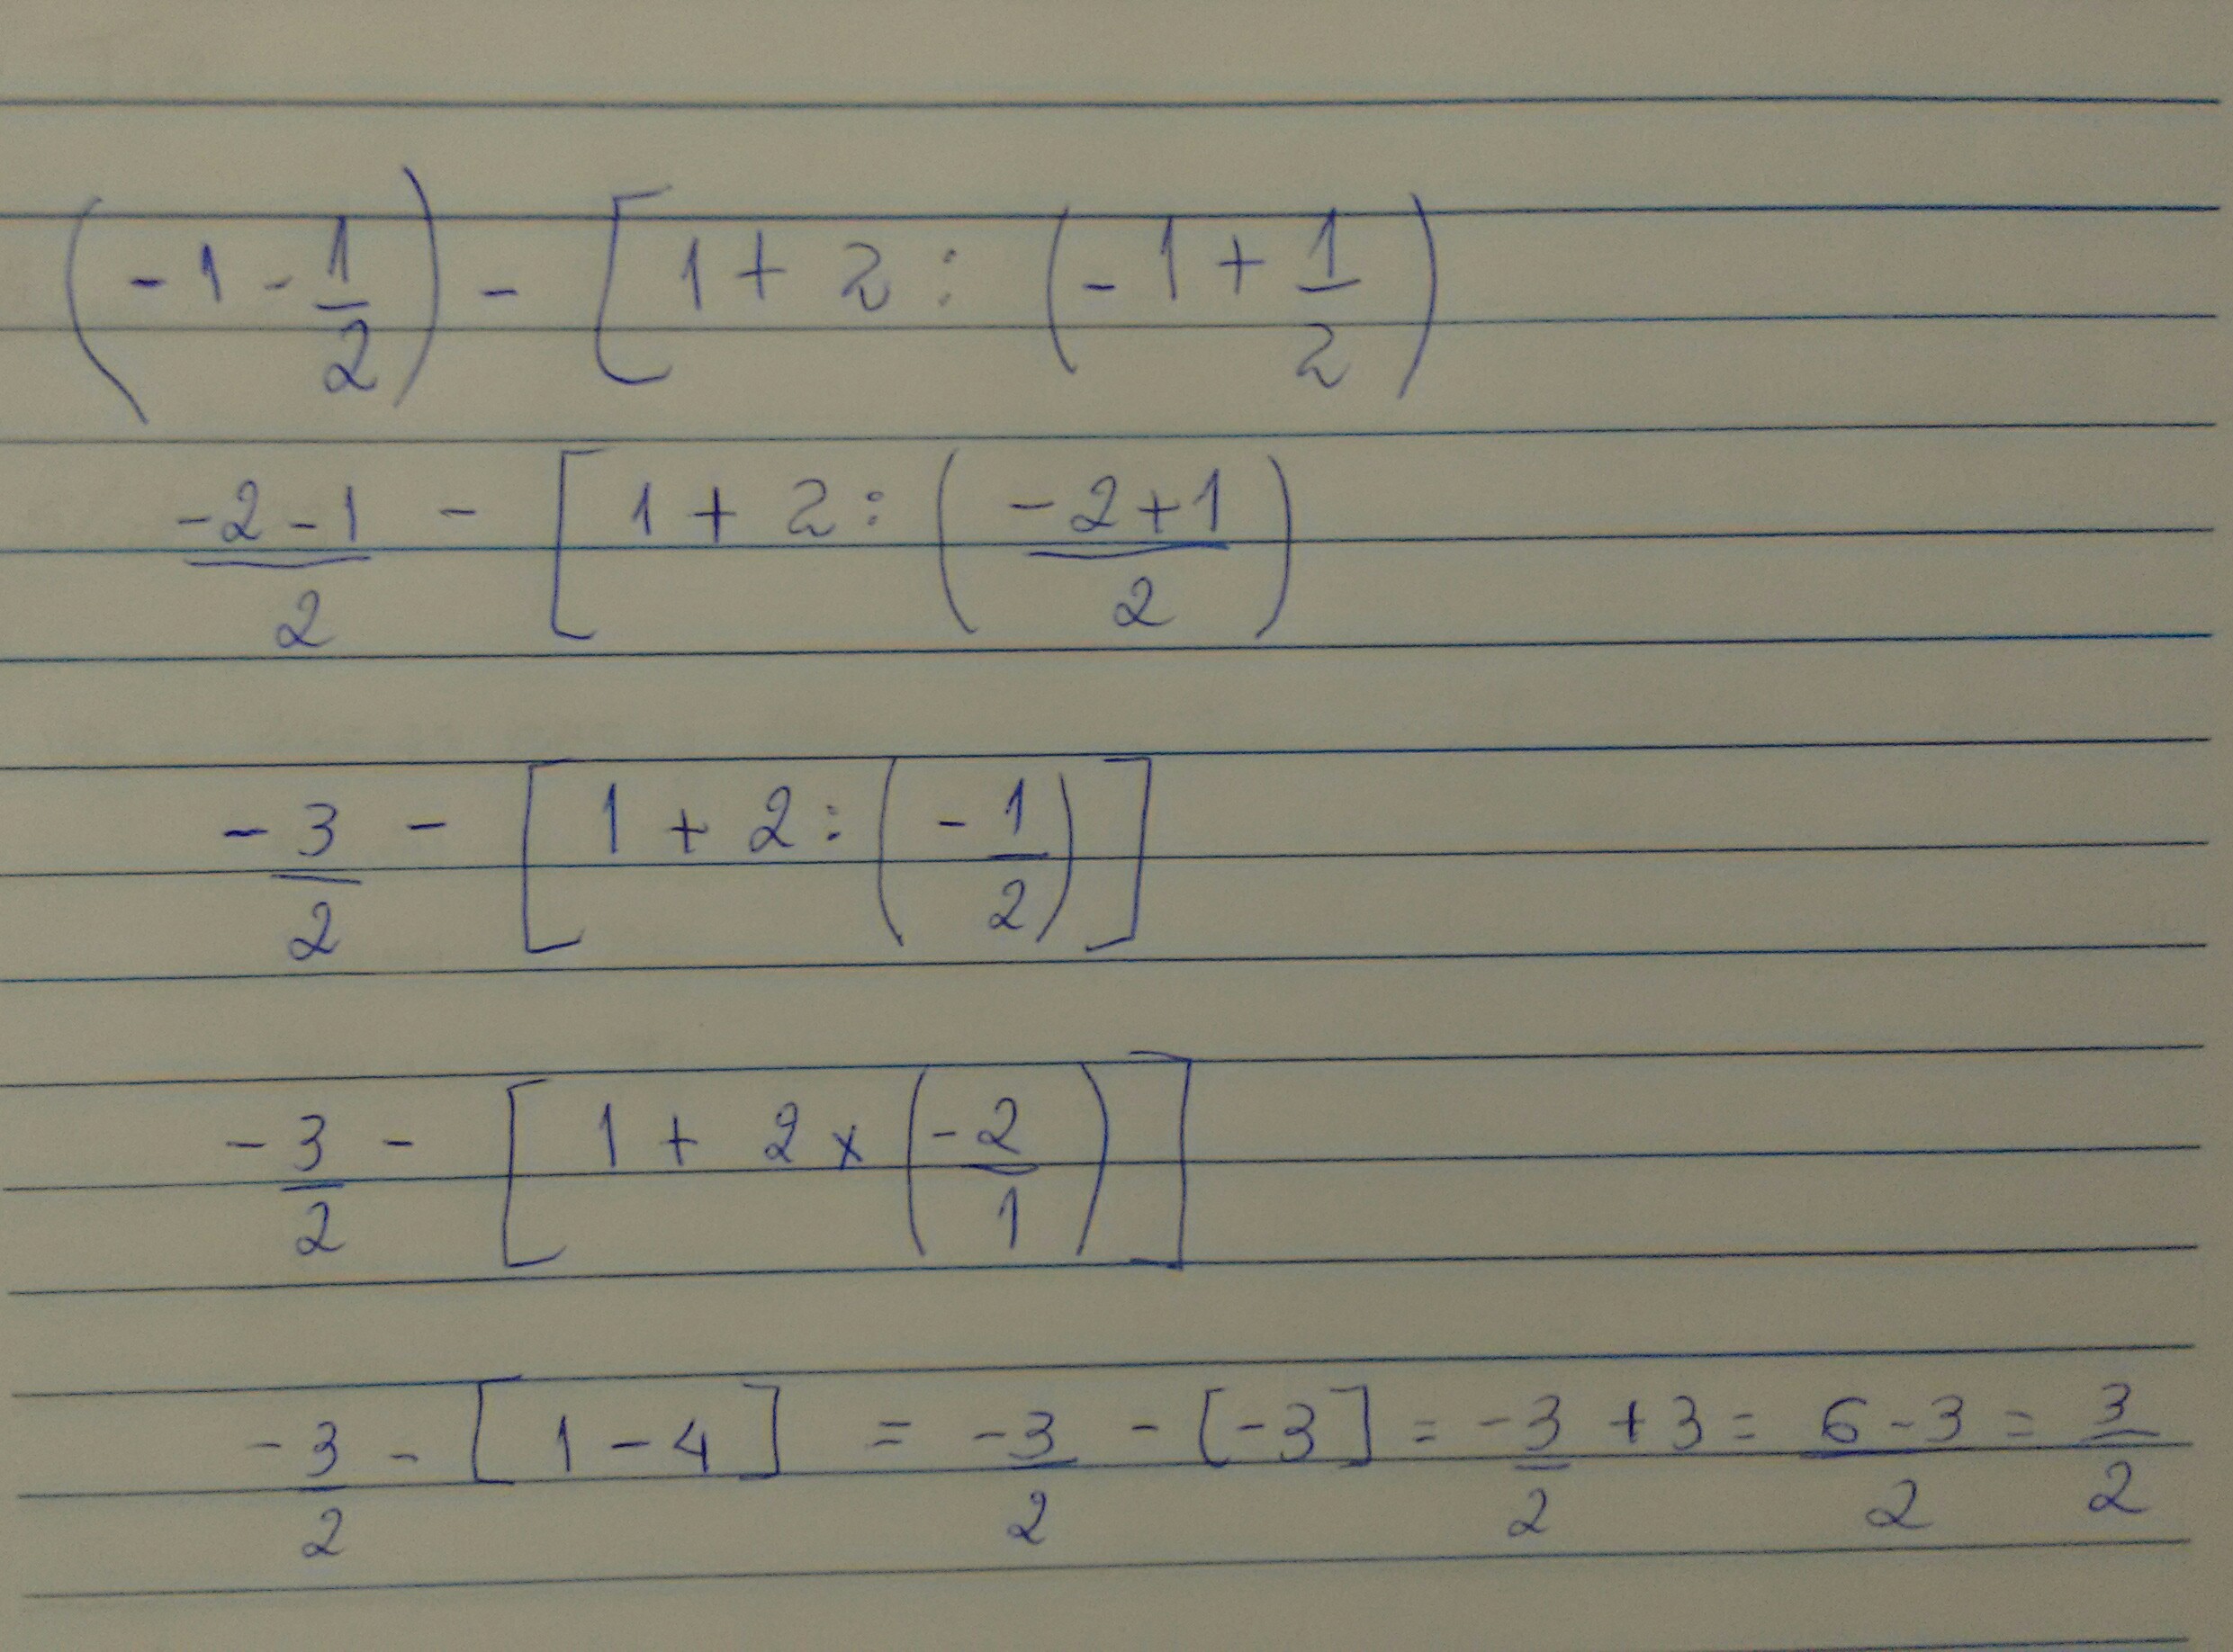 (-1 - 1/2) - [1 + 2 : (-1 + 1/2)
(-2 - 1)/2 - [1 + 2 : ((-2 + 1)/2)
-3/2 - [1 + 2 : (-1/2)]
-3/2 - [1 + 2 x (-2/1)]
-3/2 - [1 - 4] = -3/2 - [-3] = -3/2 + 3 = (6 - 3)/2 = 3/2